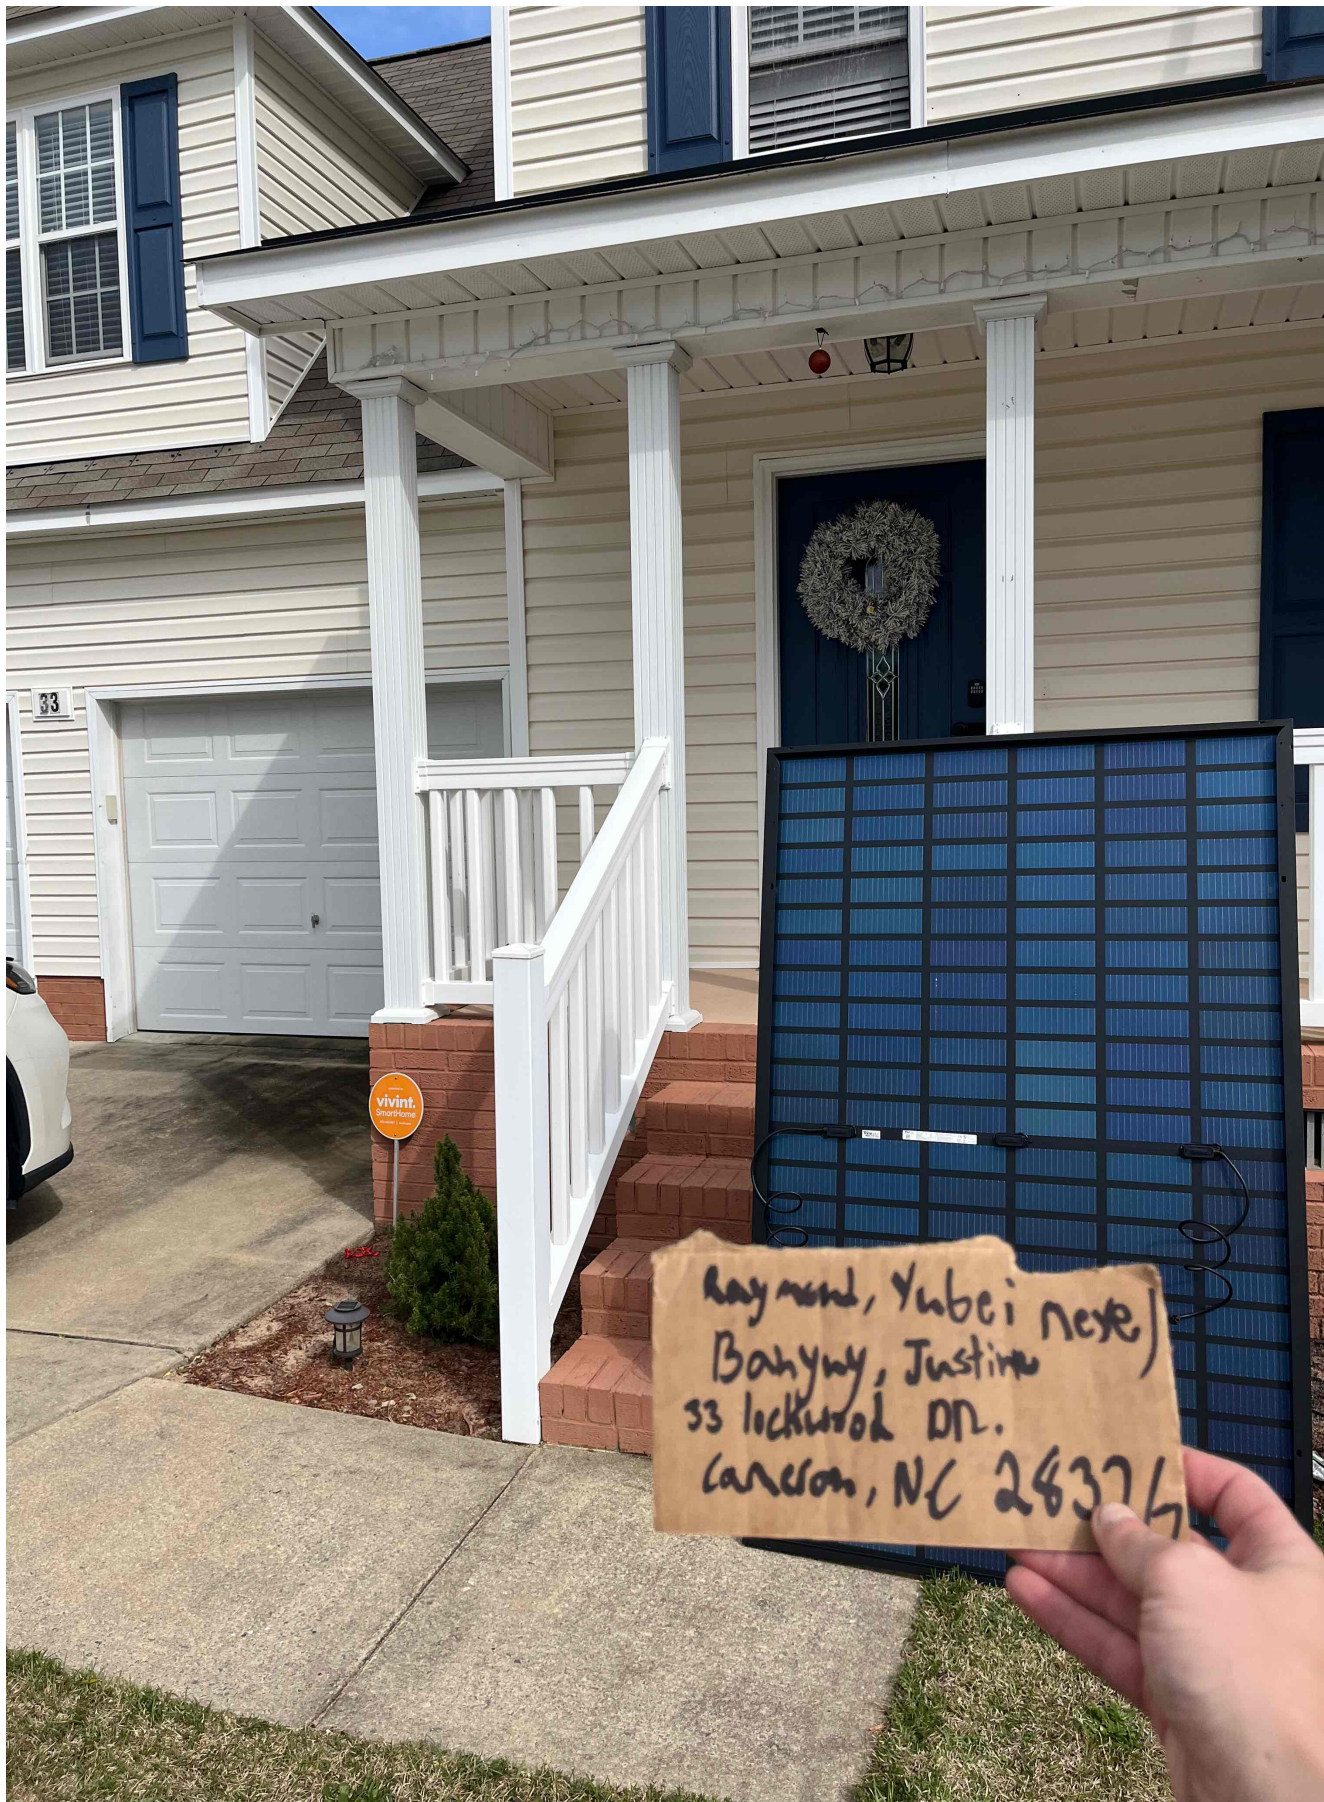 33
vivint.
SmartHome
Raymond, Yubei neye)
Banyny, Justine
33 lockwood DR.
Cameron, NC 28326